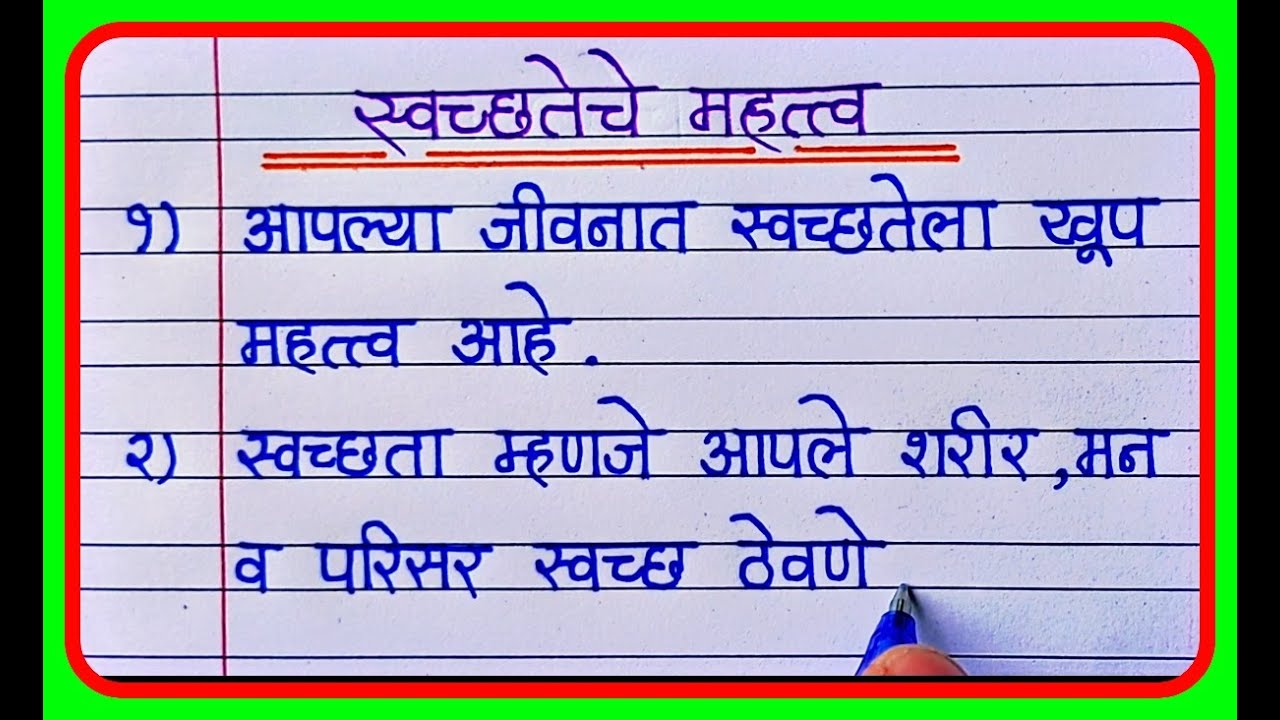 स्वच्छतेचे महत्त्व
१) आपल्या जीवनात स्वच्छतेला खूप
महत्त्व आहे.
२) स्वच्छता म्हणजे आपले शरीर, मन
व परिसर स्वच्छ ठेवणे